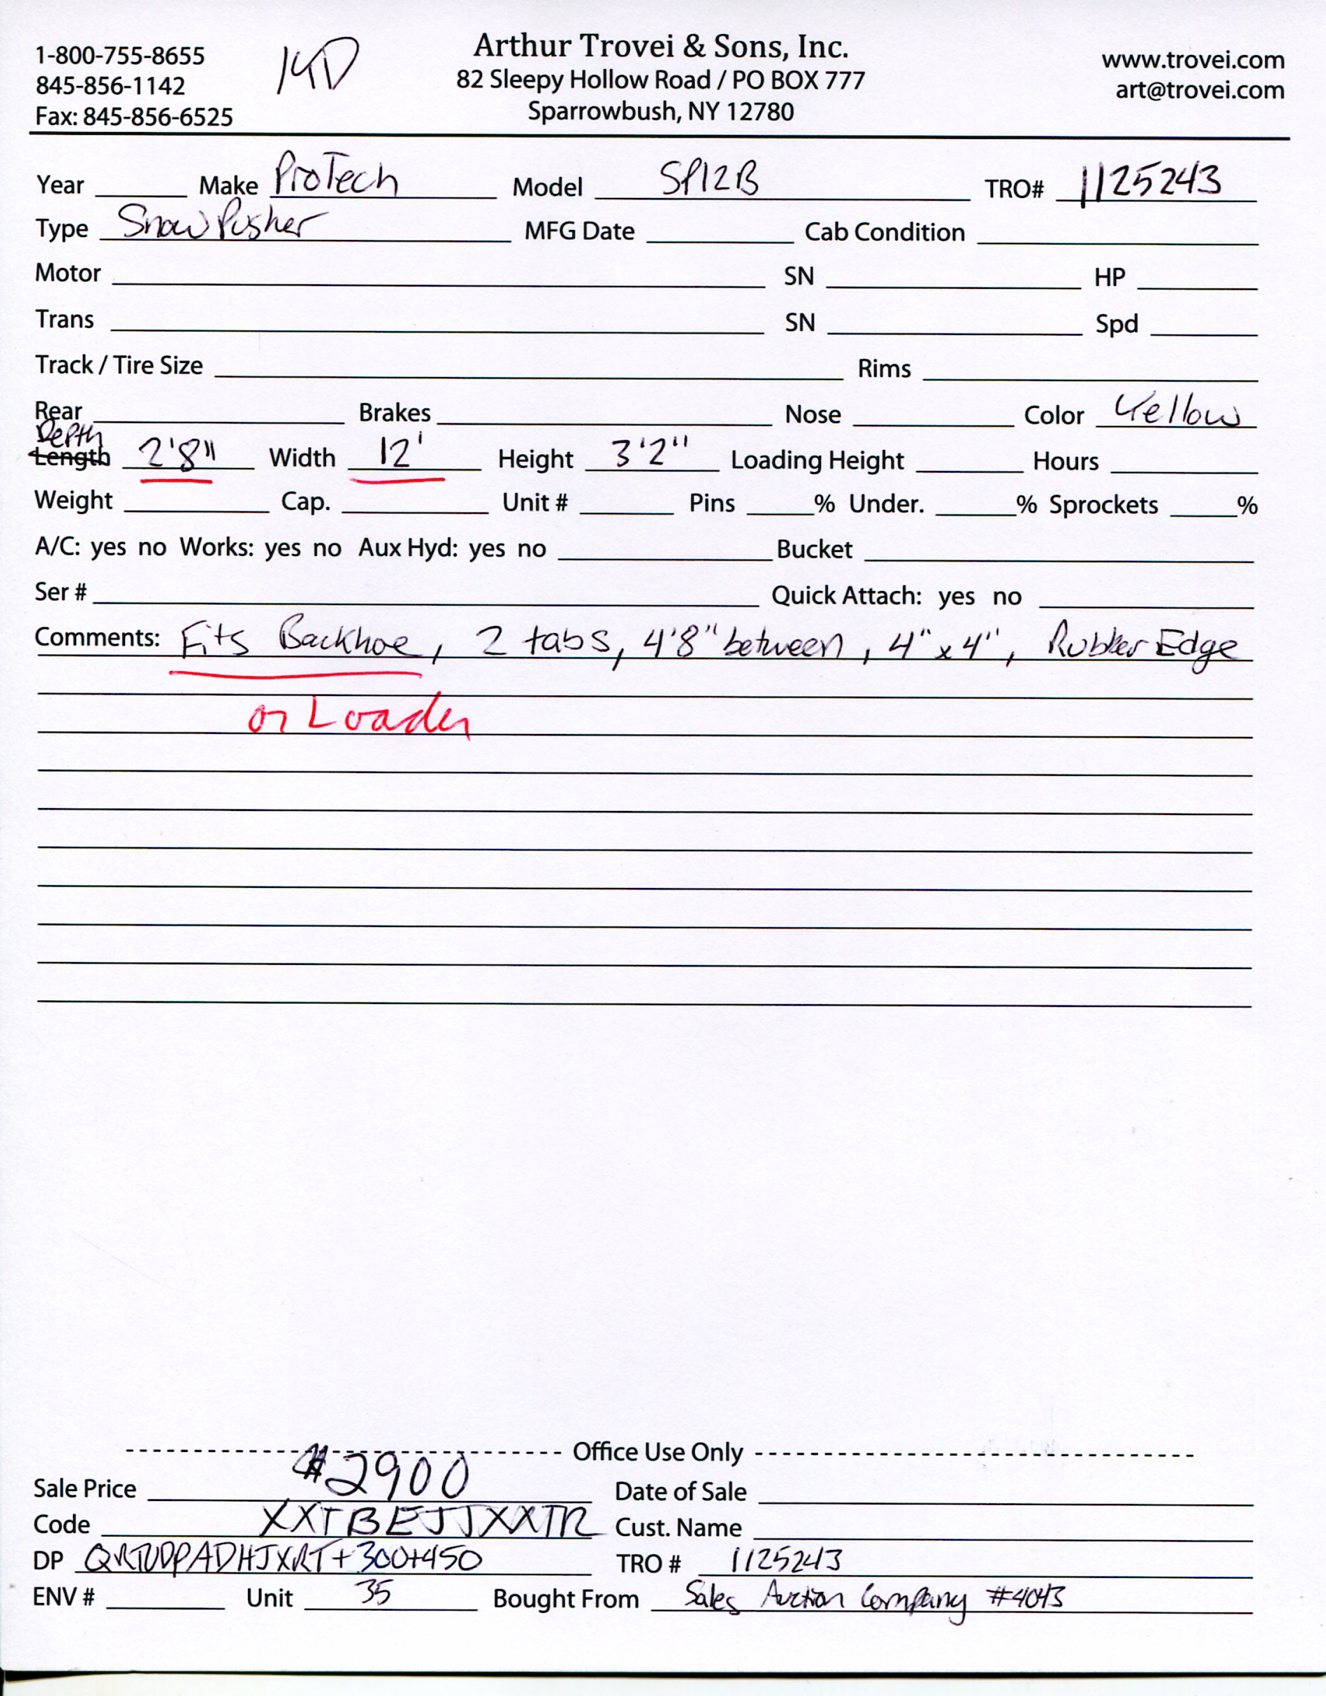 1-800-755-8655
845-856-1142
Fax: 845-856-6525
KD
Arthur Trovei & Sons, Inc.
82 Sleepy Hollow Road / PO BOX 777
Sparrowbush, NY 12780
www.trovei.com
art@trovei.com
Year Make ProTech Model SP12B TRO# 1125243
Type Snow Pusher MFG Date Cab Condition
Motor SN HP
Trans SN Spd
Track / Tire Size Rims
Rear Brakes Nose Color Yellow
Depth
Length 2'8" Width 12' Height 3'2" Loading Height Hours
Weight Cap. Unit # Pins % Under. % Sprockets %
A/C: yes no Works: yes no Aux Hyd: yes no Bucket
Ser # Quick Attach: yes no
Comments: Fits Backhoe, 2 tabs, 4'8" between, 4" x 4", Rubber Edge
or Loader
Office Use Only
Sale Price $2900 Date of Sale
Code XXTBEJJXXTR Cust. Name
DP +300+450 TRO # 1125243
ENV # Unit 35 Bought From Sales Auction Company #4043